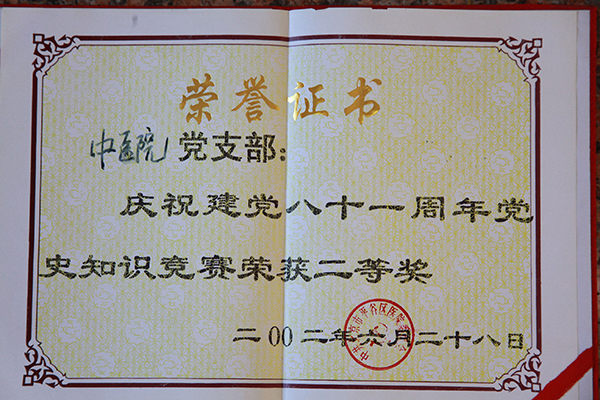 荣誉证书
中医院 党支部:
庆祝建党八十一周年党
史知识竞赛荣获二等奖
二00二年六月二十八日